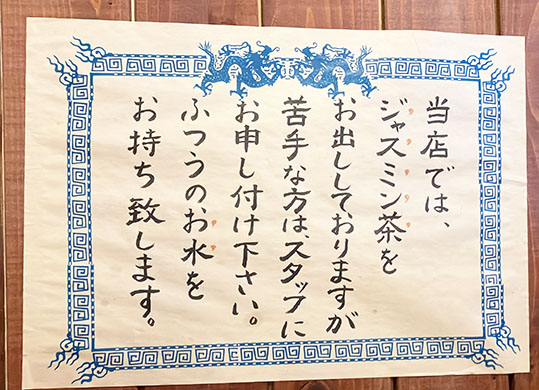 当店では、
ジャスミン茶を
お出ししておりますが
苦手な方は、スタッフに
お申し付け下さい。
ふつうのお水を
お持ち致します。